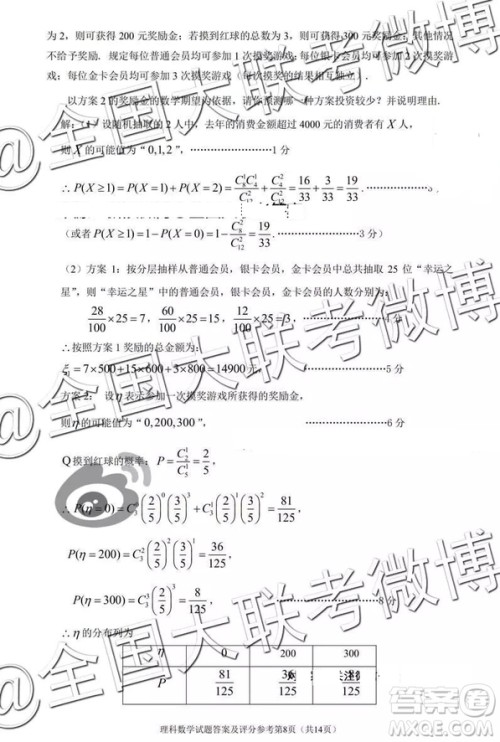 为 2，则可获得 200 元奖励金；若摸到红球的总数为 3，则可获得 300 元奖励金；其他情况
不给予奖励. 规定每位普通会员均可参加 1 次摸奖游戏；每位银卡会员均可参加 2 次摸奖游
戏；每位金卡会员均可参加 3 次摸奖游戏（每次摸奖的结果相互独立）.
以方案 2 的奖励金的数学期望为依据，请你预测哪一种方案投资较少？并说明理由.
解：（1）设随机抽取的 2 人中，去年的消费金额超过 4000 元的消费者有 X 人，
则 X 的可能值为“0,1,2”，………………………1 分
∴P(X≥1)=P(X=1)+P(X=2)=C_8^1C_4^1/C_12^2+C_4^2/C_12^2=16/33+3/33=19/33.
（或者P(X≥1)=1-P(X=0)=1-C_8^2/C_12^2=19/33. ………………3 分）
（2）方案 1：按分层抽样从普通会员，银卡会员，金卡会员中总共抽取 25 位“幸运之
星”，则“幸运之星”中的普通会员，银卡会员，金卡会员的人数分别为：
28/100×25=7，60/100×25=15，12/100×25=3，
∴按照方案 1 奖励的总金额为：
ξ_1=7×500+15×600+3×800=14900元，………………5 分
方案 2：设η表示参加一次摸奖游戏所获得的奖励金，
则η的可能值为“0,200,300”，………………6 分
Q 摸到红球的概率：P=C_2^1/C_5^1=2/5，
∴P(η=0)=C_3^0(2/5)^0(3/5)^3+C_3^1(2/5)^1(3/5)^2=81/125
P(η=200)=C_3^2(2/5)^2(3/5)^1=36/125，
P(η=300)=C_3^3(2/5)^3=8/125 ………………8 分
∴η的分布列为
η 0 200 300
P 81/125 36/125 8/125
理科数学试题答案及评分参考第8页（共14页）
@全国大联考微博
@全国大联考微博
@全国大联考微博